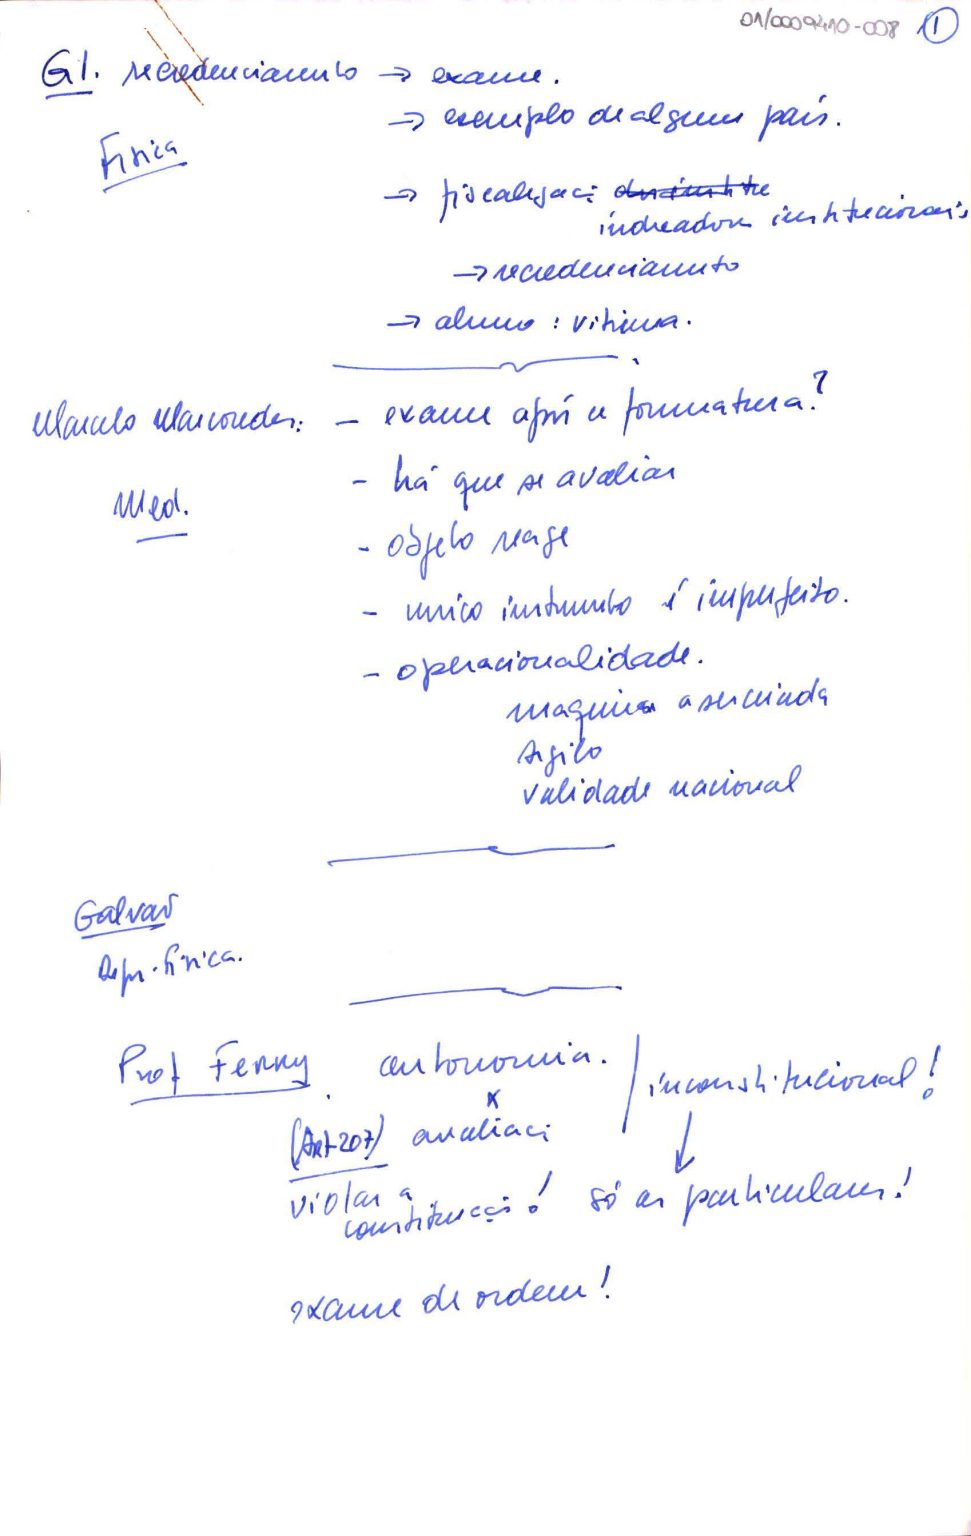 01/0009410-008 1
G1. recredenciamento → exame.
Física
→ exemplo de algum país.
→ fiscalizaçã:
indicadores institucionais
→ recredenciamento
→ aluno : vítima.
Marcelo Marcondes: - exame após a formatura?
Med.
- há que se avaliar
- objeto reage
- unico instrumento é imperfeito.
- operacionalidade.
maquina
sigilo
validade nacional
Galvão
Depr. Física.
Prof Ferry autonomia. / inconstitucional!
x
(Art 207) avaliaçã
violar a
constituição! só as particulares!
exame de ordem!